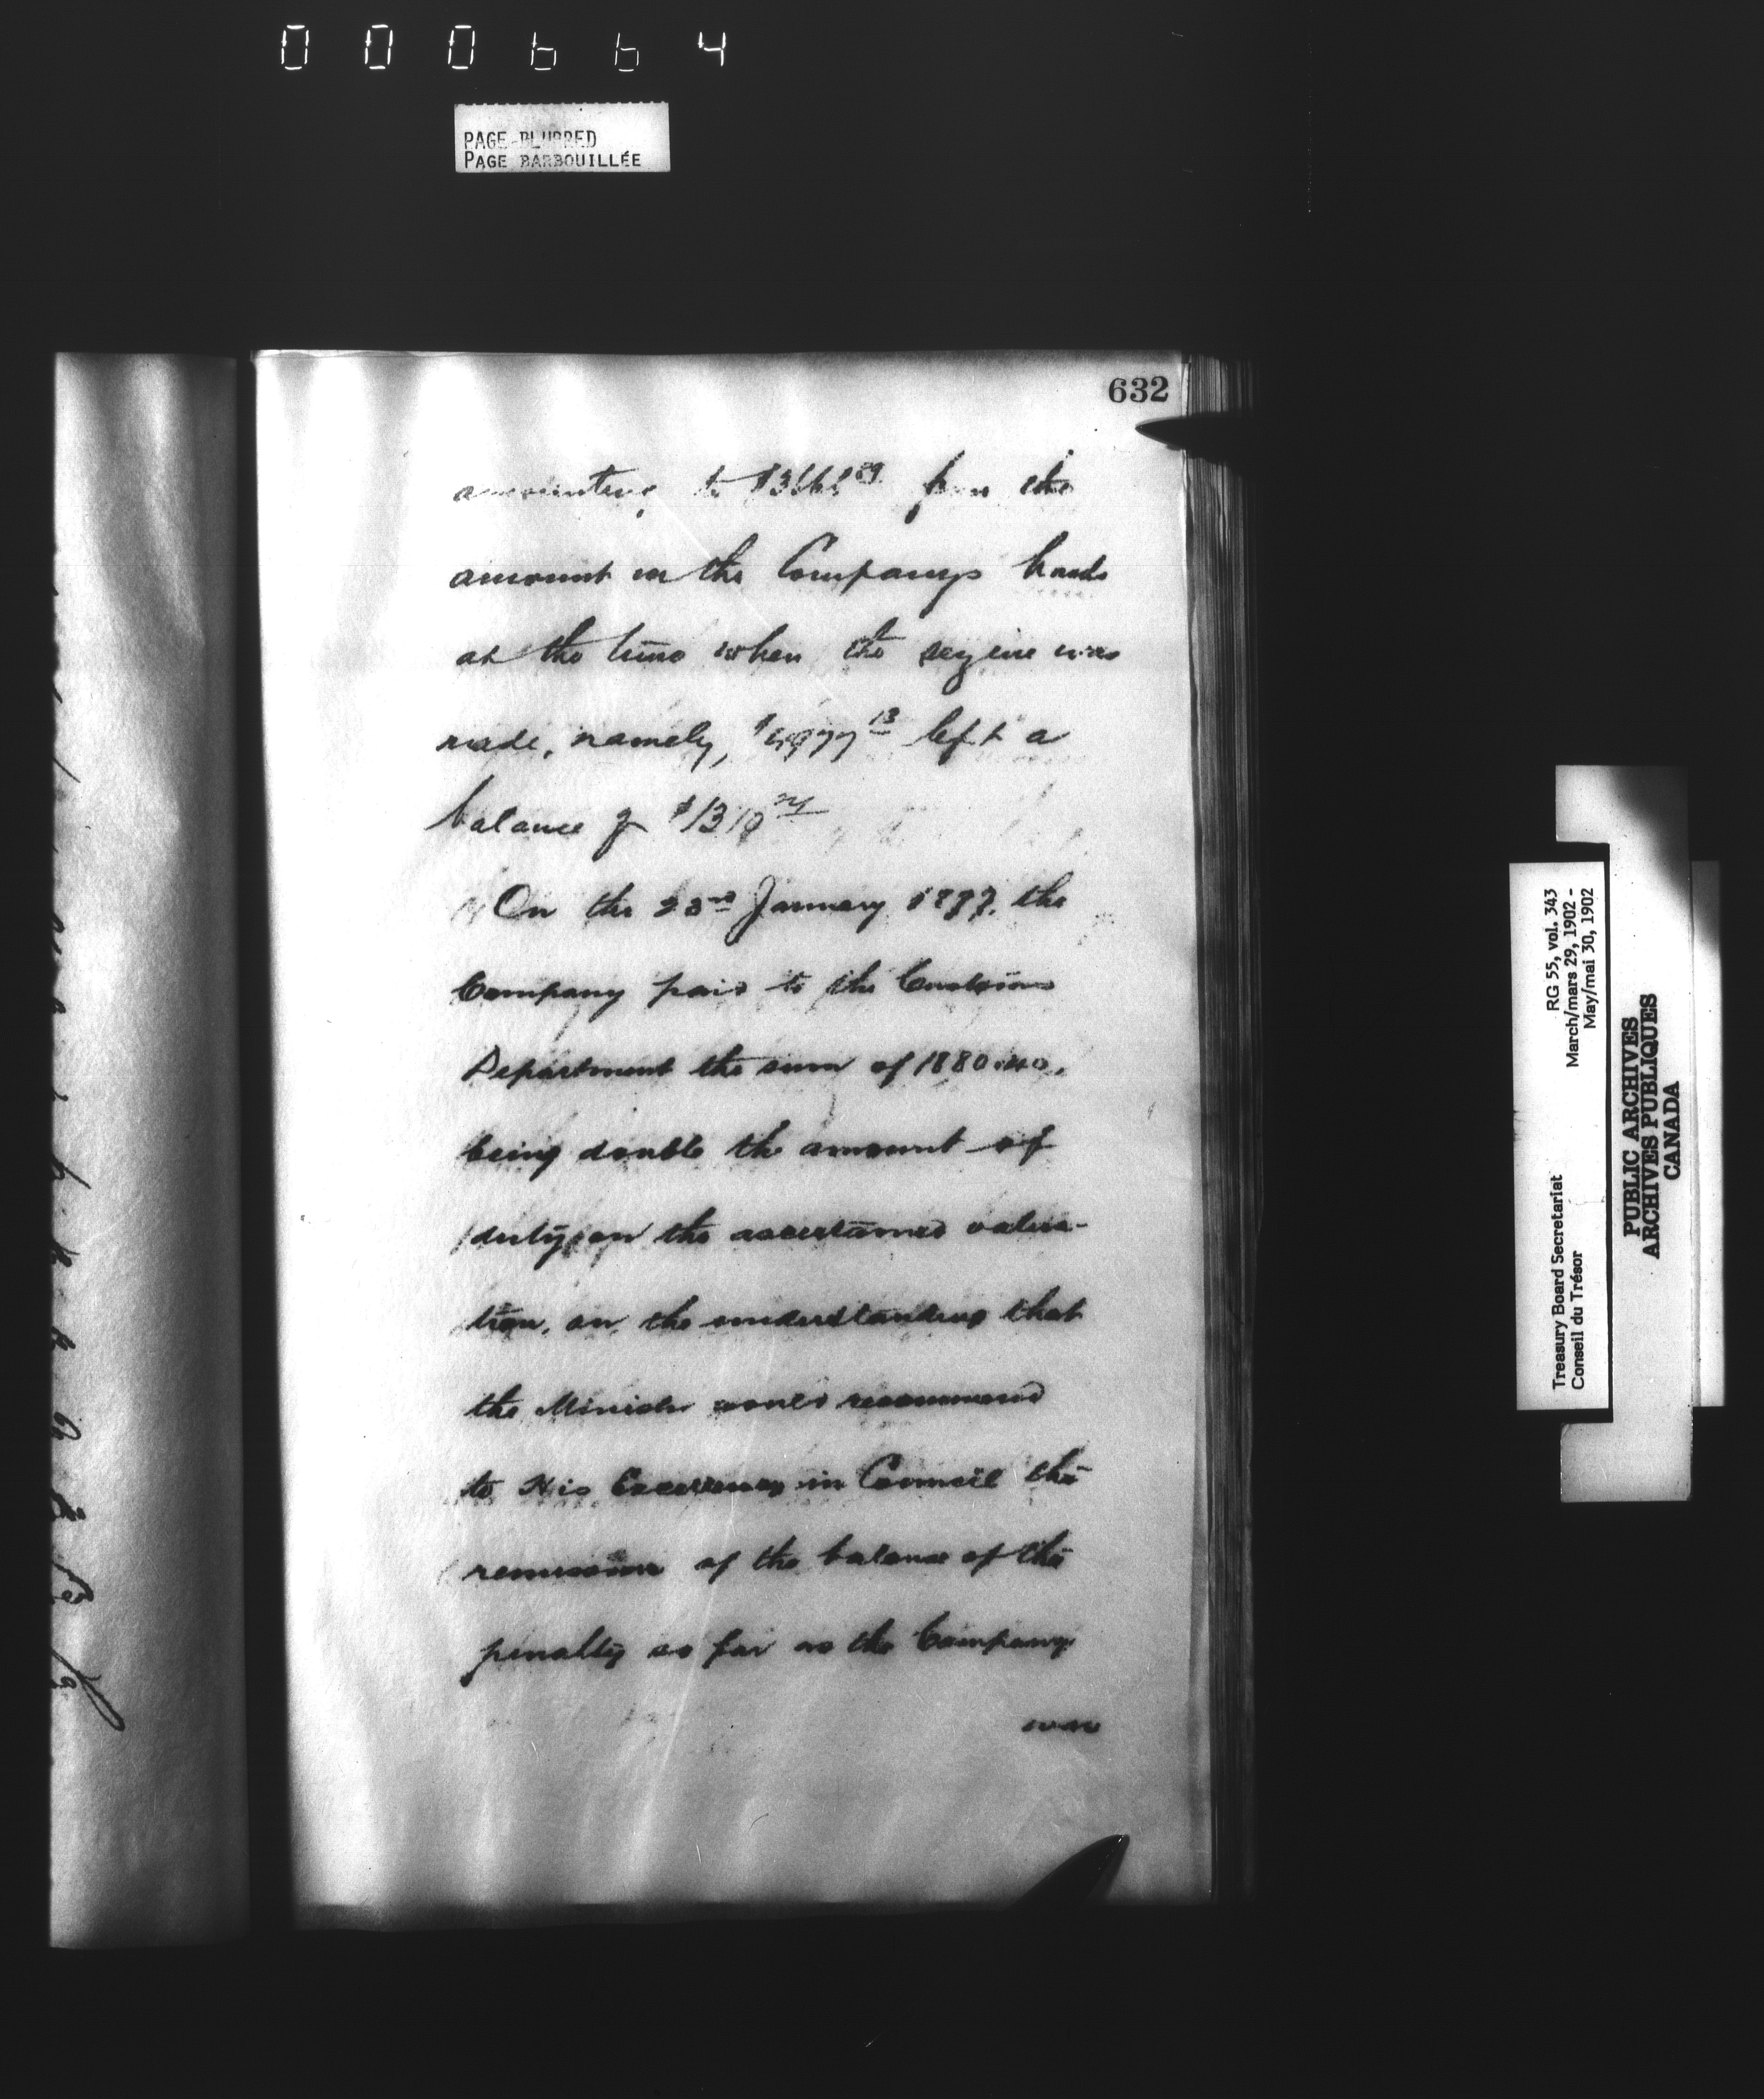 000664
PAGE BLURRED
PAGE BARBOUILLÉE
632
amounting to from the
amount in the Companys hands
at the time when the seizure was
made, namely, left a
balance of
On the 23rd January the
Company paid to the Customs
Department the sum of 1880.40.
being double the amount of
duty on the ascertained valua-
tion, on the understanding that
the Minister would recommend
to His Excellency in Council the
remission of the balance of the
penalty so far as the Company
was
RG 55, vol. 343
March/mars 29, 1902 -
May/mai 30, 1902
Treasury Board Secretariat
Conseil du Trésor
PUBLIC ARCHIVES
ARCHIVES PUBLIQUES
CANADA